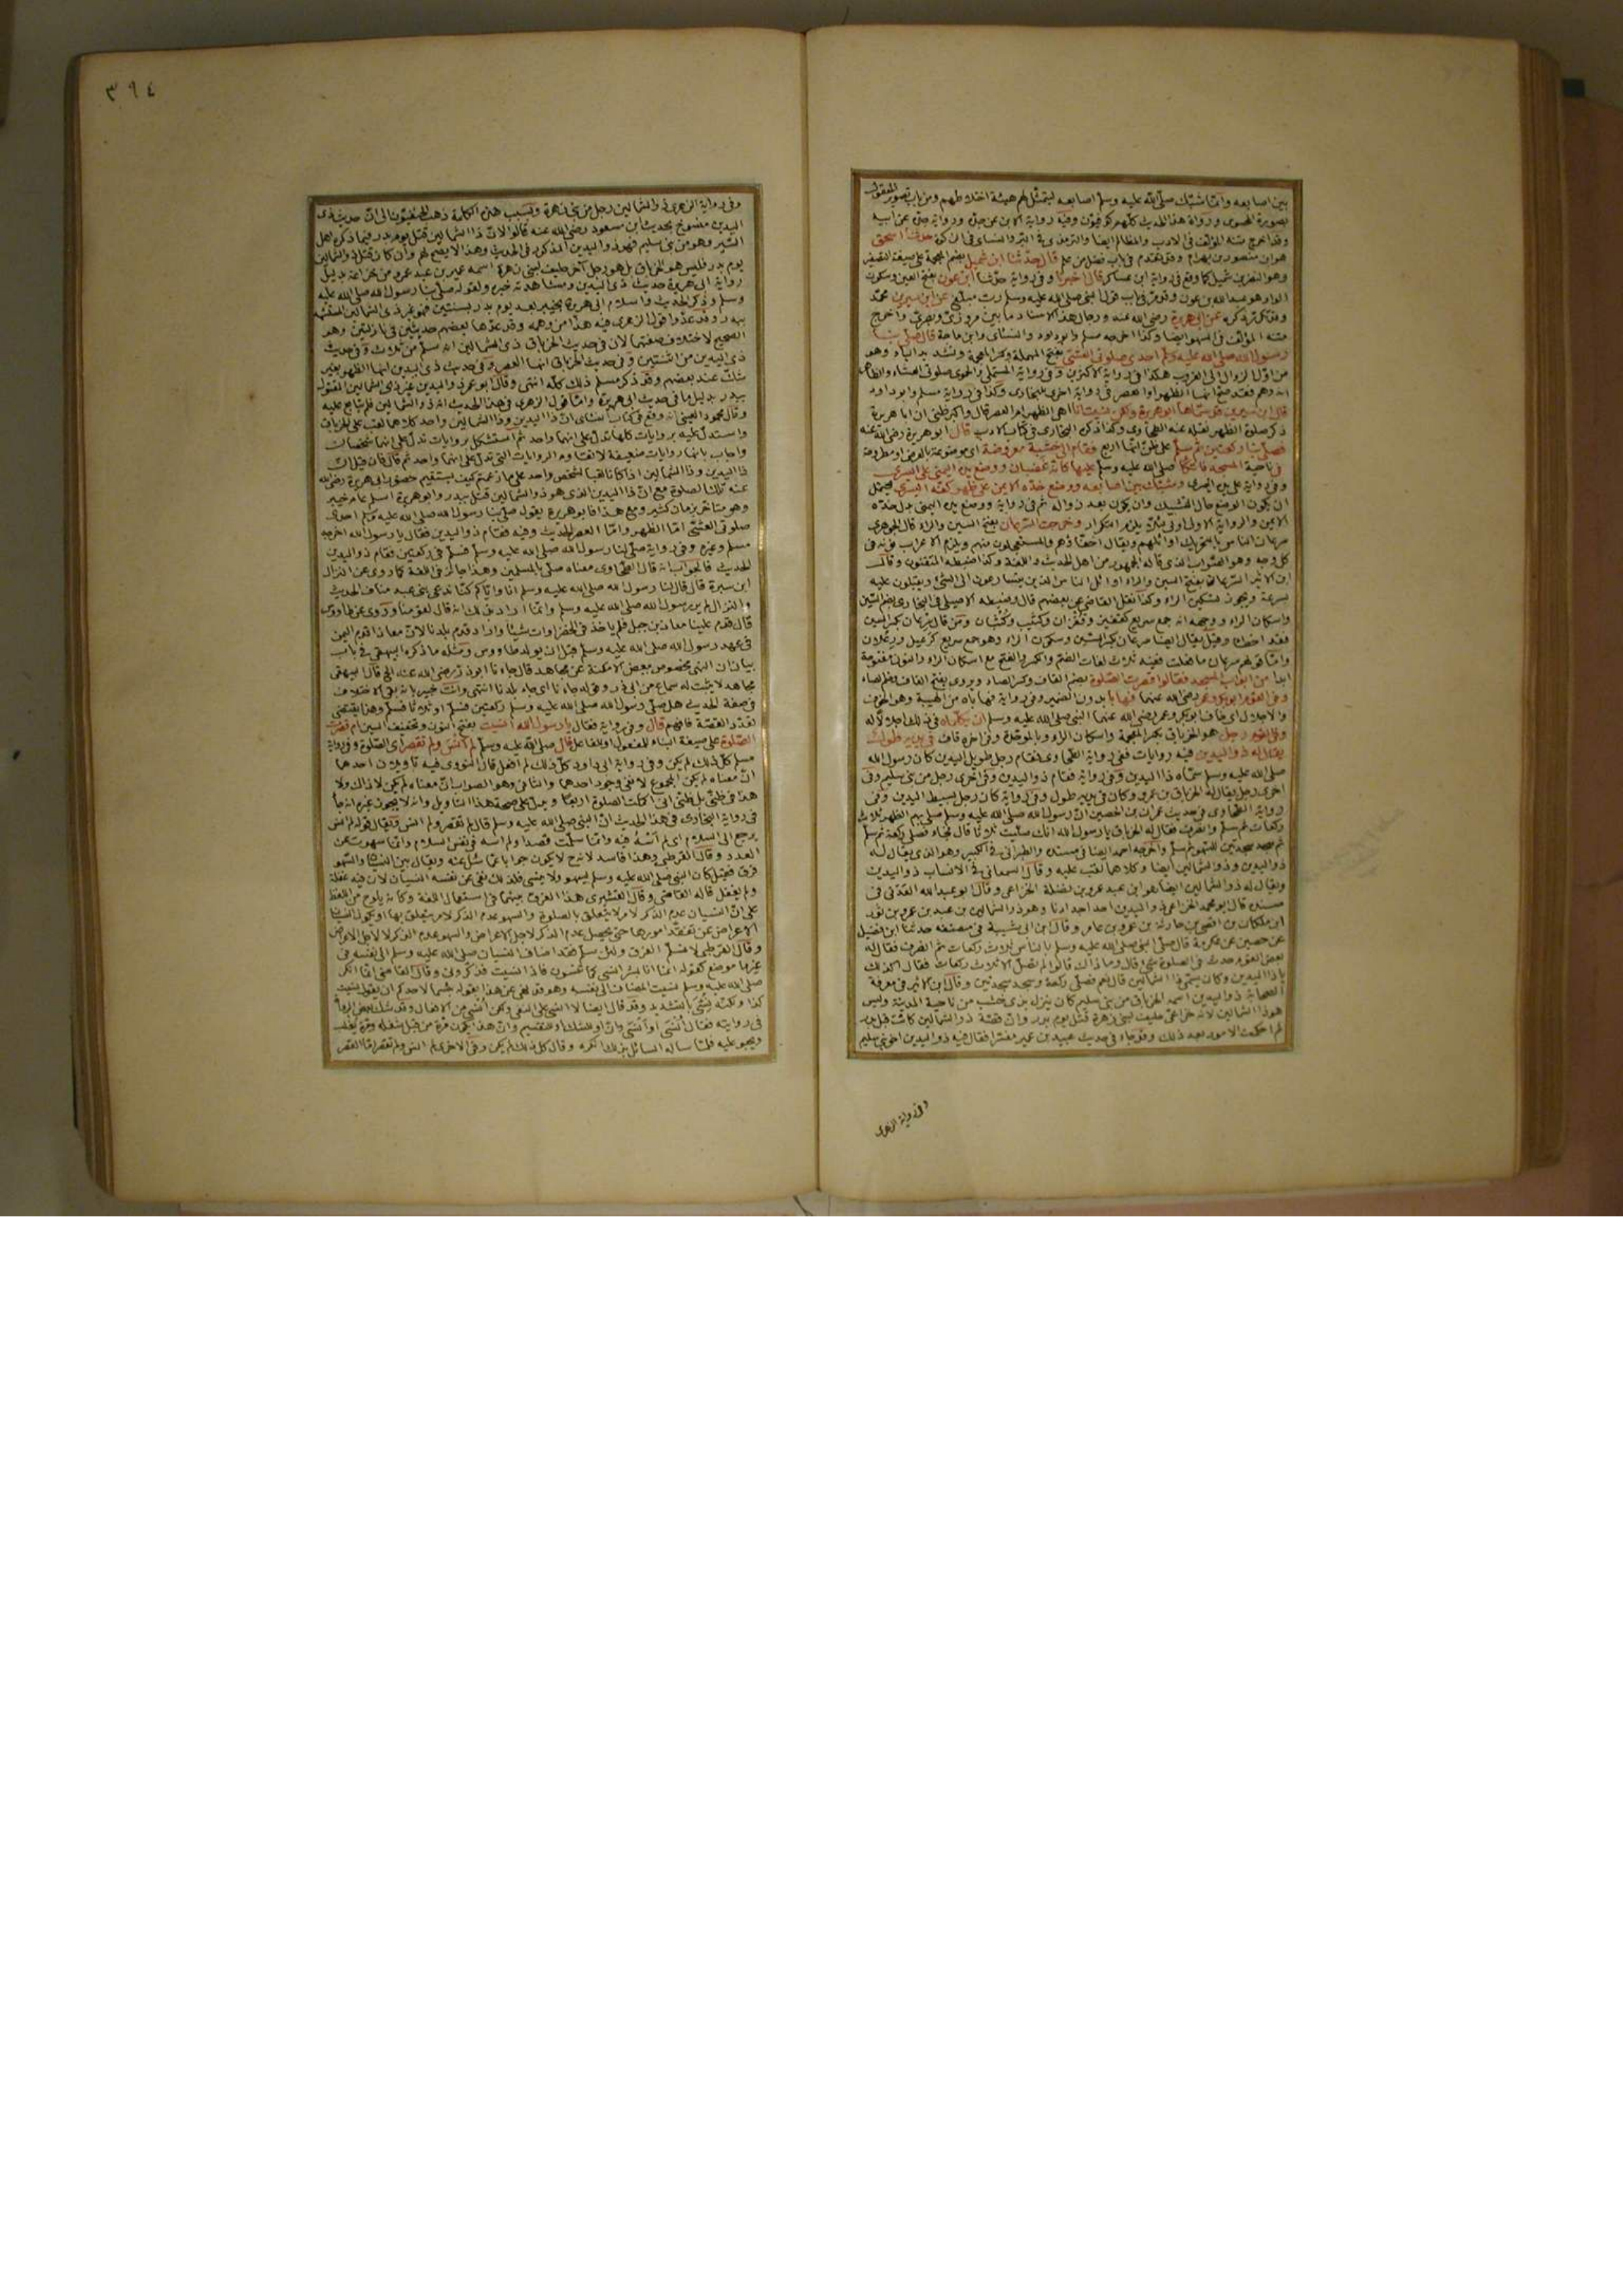 بين اصابعه وانما شبك صلى الله عليه وسلم اصابعه ليتمثل لهم هيئة اختلاطهم ومن باب تصوير المعقول
بصورة المحسوس ورواة هذا الحديث كلهم كوفيون وفيه رواية الابن عن جده ورواية جده عن ابيه
وقد اخرج متنه المؤلف في الادب والمظالم ايضا والترمذي في البر والنسائي في الزكوة حدثنا اسحق
هو ابن منصور بن بهرام وقد تقدم في باب فضل من علم قال حدثنا ابن شميل بضم المعجمة على صيغة التصغير
وهو النضر بن شميل كما وقع في رواية ابن عساكر قال اخبرنا وفي رواية حدثنا ابن عون بفتح العين وسكون
الواو هو عبد الله بن عون وقد مر في باب قول النبي صلى الله عليه وسلم رب مبلغ عن ابن سيرين محمد
وقد تكرر ذكره عن ابي هريرة رضي الله عنه ورجال هذا الاسناد ما بين مروزي وبصري واخرج
متنه المؤلف في السهو ايضا وكذا اخرجه مسلم وابو داود والنسائي وابن ماجة قال صلى بنا
رسول الله صلى الله عليه وسلم احدى صلوتي العشي بفتح المهملة وكسر المعجمة وتشديد الياء وهو
من اول الزوال الى الغروب هكذا في رواية الاكثرين وفي رواية المستملي والحموي صلوتي العشاء والظاهر
انه وهم فقد صح انها الظهر او العصر في رواية اخرى للبخاري وكذا في رواية مسلم وابو داود
قال ابن سيرين قد سماها ابو هريرة ولكن نسيت انا اهي الظهر ام العصر قال واكبر ظني ان ابا هريرة
ذكر صلوة الظهر نقله عنه الطحاوي وكذا ذكره البخاري في كتاب الادب قال ابو هريرة رضي الله عنه
فصلى بنا ركعتين ثم سلم على ظن انها اربع فقام الى خشبة معروضة اي موضوعة بالعرض او مطروحة
في ناحية المسجد فاتكأ صلى الله عليه وسلم عليها كانه غضبان ووضع يده اليمنى على اليسرى
وفي رواية على يده اليسرى وشبك بين اصابعه ووضع خده الايمن على ظهر كفه اليسرى فيحتمل
ان يكون الوضع حال التشبيك وان يكون بعد زواله ثم في رواية ووضع يده اليمنى بدل خده
الايمن والرواية الاولى اولى لئلا يلزم التكرار وخرجت السرعان بفتح السين والراء قال الجوهري
سرعان الناس بالتحريك اوائلهم ويقال اخفاؤهم والمستعجلون منهم ويلزم الاعراب نونه في
كل وجه وهو الصواب الذي قاله الجمهور من اهل الحديث واللغة وكذا ضبطه المتقنون وقال
ابن الاثير السرعان بفتح السين والراء اوائل الناس الذين يتسارعون الى الشيء ويقبلون عليه
بسرعة ويجوز تسكين الراء وكذا نقل القاضي عن بعضهم قال وضبطه الاصيلي في البخاري بضم السين
واسكان الراء ووجهه انه جمع سريع كقفيز وقفزان وكثيب وكثبان ومن قال سرعان بكسر السين
فقد اخطأ وقيل يقال ايضا سرعان بكسر السين وسكون الراء وهو جمع سريع كرعيل ورعلان
واما قولهم سرعان ما فعلت ففيه ثلاث لغات الضم والكسر والفتح مع اسكان الراء والنون مفتوحة
ابدا من ابواب المسجد فقالوا قصرت الصلوة بضم القاف وكسر الصاد ويروى بفتح القاف وضم الصاد
وفي القوم ابو بكر وعمر رضي الله عنهما فهابا بدون الضمير وفي رواية فهاباه من الهيبة وهو الخوف
والاجلال اي خاف ابو بكر وعمر رضي الله عنهما النبي صلى الله عليه وسلم ان يكلماه في ذلك اجلالا له
وفي القوم رجل هو الخرباق بكسر المعجمة واسكان الراء وبالموحدة وفي اخره قاف في يديه طول
يقال له ذو اليدين فيه روايات ففي رواية الطحاوي فقام رجل طويل اليدين كان رسول الله
صلى الله عليه وسلم سماه ذا اليدين وفي رواية فقام ذو اليدين وفي اخرى رجل من بني سليم وفي
اخرى رجل يقال له الخرباق بن عمرو وكان في يديه طول وفي رواية كان رجل بسيط اليدين وفي
رواية الطحاوي في حديث عمران بن الحصين ان رسول الله صلى الله عليه وسلم صلى بهم الظهر ثلاث
ركعات ثم سلم وانصرف فقال له الخرباق يا رسول الله انك صليت ثلاثا قال فجاء فصلى ركعة ثم سلم
ثم سجد سجدتين للسهو ثم سلم واخرجه احمد ايضا في مسنده والطبراني في الكبير وهو الذي يقال له
ذو اليدين وذو الشمالين ايضا وكلاهما لقب عليه وقال السمعاني في الانساب ذو اليدين
ويقال له ذو الشمالين ايضا هو ابن عبد عمرو بن نضلة الخزاعي وقال ابو عبد الله العدني في
مسنده قال ابو محمد الخزاعي ذو اليدين احد اجدادنا وهو ذو الشمالين بن عبد بن عمرو بن ثور
ابن ملكان بن افصى بن حارثة بن عمرو بن عامر وقال ابن ابي شيبة في مصنفه حدثنا ابن فضيل
عن حصين عن عكرمة قال صلى النبي صلى الله عليه وسلم بالناس ثلاث ركعات ثم انصرف فقال له
بعض القوم حدث في الصلوة شيء قال وما ذاك قالوا لم تصل الا ثلاث ركعات فقال اكذلك
يا ذا اليدين وكان يسمى ذا الشمالين قال نعم فصلى ركعة وسجد سجدتين وقال ابن الاثير في معرفة
الصحابة ذو اليدين اسمه الخرباق من بني سليم كان ينزل بذي خشب من ناحية المدينة وليس
هو ذا الشمالين لانه خزاعي حليف لبني زهرة قتل يوم بدر وان قصة ذو الشمالين كانت قبل بدر
ثم احكمت الامور بعد ذلك وقد جاء في حديث عبيد بن عمير مفسرا فقال فيه ذو اليدين اخو بني سليم
وفي رواية الزهري
٣٩٤
وفي رواية الزهري ذو الشمالين رجل من بني زهرة وبسبب هذه الكلمة ذهب الحنفيون الى ان حديث ذي
اليدين منسوخ بحديث ابن مسعود رضي الله عنه قالوا لان ذا الشمالين قتل يوم بدر فيما ذكره اهل
السير وهو من بني سليم فهو ذو اليدين المذكور في الحديث وهذا لا يصح لهم وان كان قتل ذو الشمالين
يوم بدر فليس هو الخرباق بل هو رجل آخر حليف لبني زهرة اسمه عمير بن عبد عمرو من خزاعة بدليل
رواية ابي هريرة حديث ذي اليدين ومشاهدته خبره ولقوله صلى بنا رسول الله صلى الله عليه
وسلم وذكر الحديث واسلام ابي هريرة بخيبر بعد يوم بدر بسنتين فهو غير ذي الشمالين المستشهد
ببدر وقد عدوا قول الزهري فيه هذا من وهمه وقد عدها بعضهم حديثين في نازلتين وهو
الصحيح لاختلاف صفتهما لان في حديث الخرباق ذي الشمالين انه سلم من ثلاث وفي حديث
ذي اليدين من اثنتين وفي حديث الخرباق انها العصر وفي حديث ذي اليدين انها الظهر بغير
شك عند بعضهم وقد ذكر مسلم ذلك كله انتهى وقال ابو عمر ذو اليدين غير ذي الشمالين المقتول
ببدر بدليل ما في حديث ابي هريرة واما قول الزهري في هذا الحديث انه ذو الشمالين فلم يتابع عليه
وقال محمود العيني انه وقع في كتاب النسائي ان ذا اليدين وذا الشمالين واحد كلاهما لقب على الخرباق
واستدل عليه بروايات كلها تدل على انهما واحد ثم استشكل بروايات تدل على انهما شخصان
واجاب بانها روايات ضعيفة لا تقاوم الروايات التي تدل على انهما واحد ثم قال فان قيل ان
ذا اليدين وذا الشمالين اذا كانا لقبا لشخص واحد على ما زعمتم كيف يستقيم حضور ابي هريرة رضي الله
عنه تلك الصلوة مع ان ذا اليدين الذي هو ذو الشمالين قتل ببدر وابو هريرة اسلم عام خيبر
وهو متأخر بزمان كثير ومع هذا فابو هريرة يقول صلى بنا رسول الله صلى الله عليه وسلم احدى
صلوتي العشي اما الظهر واما العصر الحديث وفيه فقام ذو اليدين فقال يا رسول الله اخرجه
مسلم وغيره وفي رواية صلى لنا رسول الله صلى الله عليه وسلم فسلم في ركعتين فقام ذو اليدين
الحديث فالجواب انه قال الطحاوي معناه صلى بالمسلمين وهذا جائز في اللغة كما روي عن النزال
ابن سبرة قال قال لنا رسول الله صلى الله عليه وسلم انا واياكم كنا ندعى بني عبد مناف الحديث
والنزال لم ير رسول الله صلى الله عليه وسلم وانما اراد بذلك انه قال لقومنا وروي عن طاووس
قال قدم علينا معاذ بن جبل فلم ياخذ في الخضراوات شيئا وانما اراد قدم بلدنا لان معاذا قدم اليمن
في عهد رسول الله صلى الله عليه وسلم قبل ان يولد طاووس ومثله ما ذكره البيهقي في باب
بيان ان النهي مخصوص ببعض الامكنة عن مجاهد قال جاءنا ابو ذر رضي الله عنه الخ قال البيهقي
مجاهد لا يثبت له سماع من ابي ذر وقوله جاءنا اي جاء بلدنا انتهى وانت خبير بانه بقي الاختلاف
في صفة الحديث هل صلى رسول الله صلى الله عليه وسلم ركعتين فسلم او ثلاثا فسلم وهذا يقتضي
تعدد القصة فافهم قال وفي رواية فقال يا رسول الله أنسيت بفتح النون وتخفيف السين ام قصرت
الصلوة على صيغة البناء للمفعول او للفاعل قال صلى الله عليه وسلم لم انس ولم تقصر اي الصلوة وفي رواية
مسلم كل ذلك لم يكن وفي رواية ابي داود كل ذلك لم افعل قال النووي فيه تأويلان احدهما
ان معناه لم يكن المجموع لا نفي وجود احدهما والثاني وهو الصواب ان معناه لم يكن لا ذاك ولا
هذا في ظني بل ظني اني اكملت الصلوة اربعا ويدل على صحة هذا التاويل وانه لا يجوز غيره انه جاء
في رواية البخاري في هذا الحديث ان النبي صلى الله عليه وسلم قال لم تقصر ولم انس ويقال قوله لم انس
يرجع الى السلام اي لم أنسه فيه وانما سلمت قصدا ولم اسه في نفس السلام وانما سهوت عن
العدد وقال القرطبي وهذا فاسد لانه ح لا يكون جوابا عما سئل عنه ويقال بين النسيان والسهو
فرق فقيل كان النبي صلى الله عليه وسلم يسهو ولا ينسى فلذلك نفى عن نفسه النسيان لان فيه غفلة
ولم يغفل قاله القاضي وقال القشيري هذا الفرق بينهما في استعمال اللغة وكانه يلوح من اللفظ
على ان النسيان عدم الذكر لامر لا يتعلق بالصلوة والسهو عدم الذكر لامر يتعلق بها او يكون النسيان
الاعراض عن تفقد امورها حتى يحصل عدم الذكر لاجل الاعراض والسهو عدم الذكر لا لاجل الاعراض
وقال القرطبي لا نسلم الفرق ولئن سلم فقد اضاف النسيان صلى الله عليه وسلم الى نفسه في
غير ما موضع كقوله انما انا بشر انسى كما تنسون فاذا نسيت فذكروني وقال القاضي انما انكر
صلى الله عليه وسلم نسيت المضاف الى نفسه وهو قد نهى عن هذا بقوله بئسما لاحدكم ان يقول نسيت
كذا ولكنه نسي بالتشديد وقد قال ايضا لا انسى على النفي ولكن أنسى من الافعال وقد شك بعض الرواة
في روايته فقال أنسى او أنسى وان او للشك او للتقسيم وان هذا يكون مرة من قبل شغله ومرة يغلب
ويجبر عليه فلما ساله السائل بذلك انكره وقال كل ذلك لم يكن وفي الاخرى لم انس ولم تقصر اما القصر